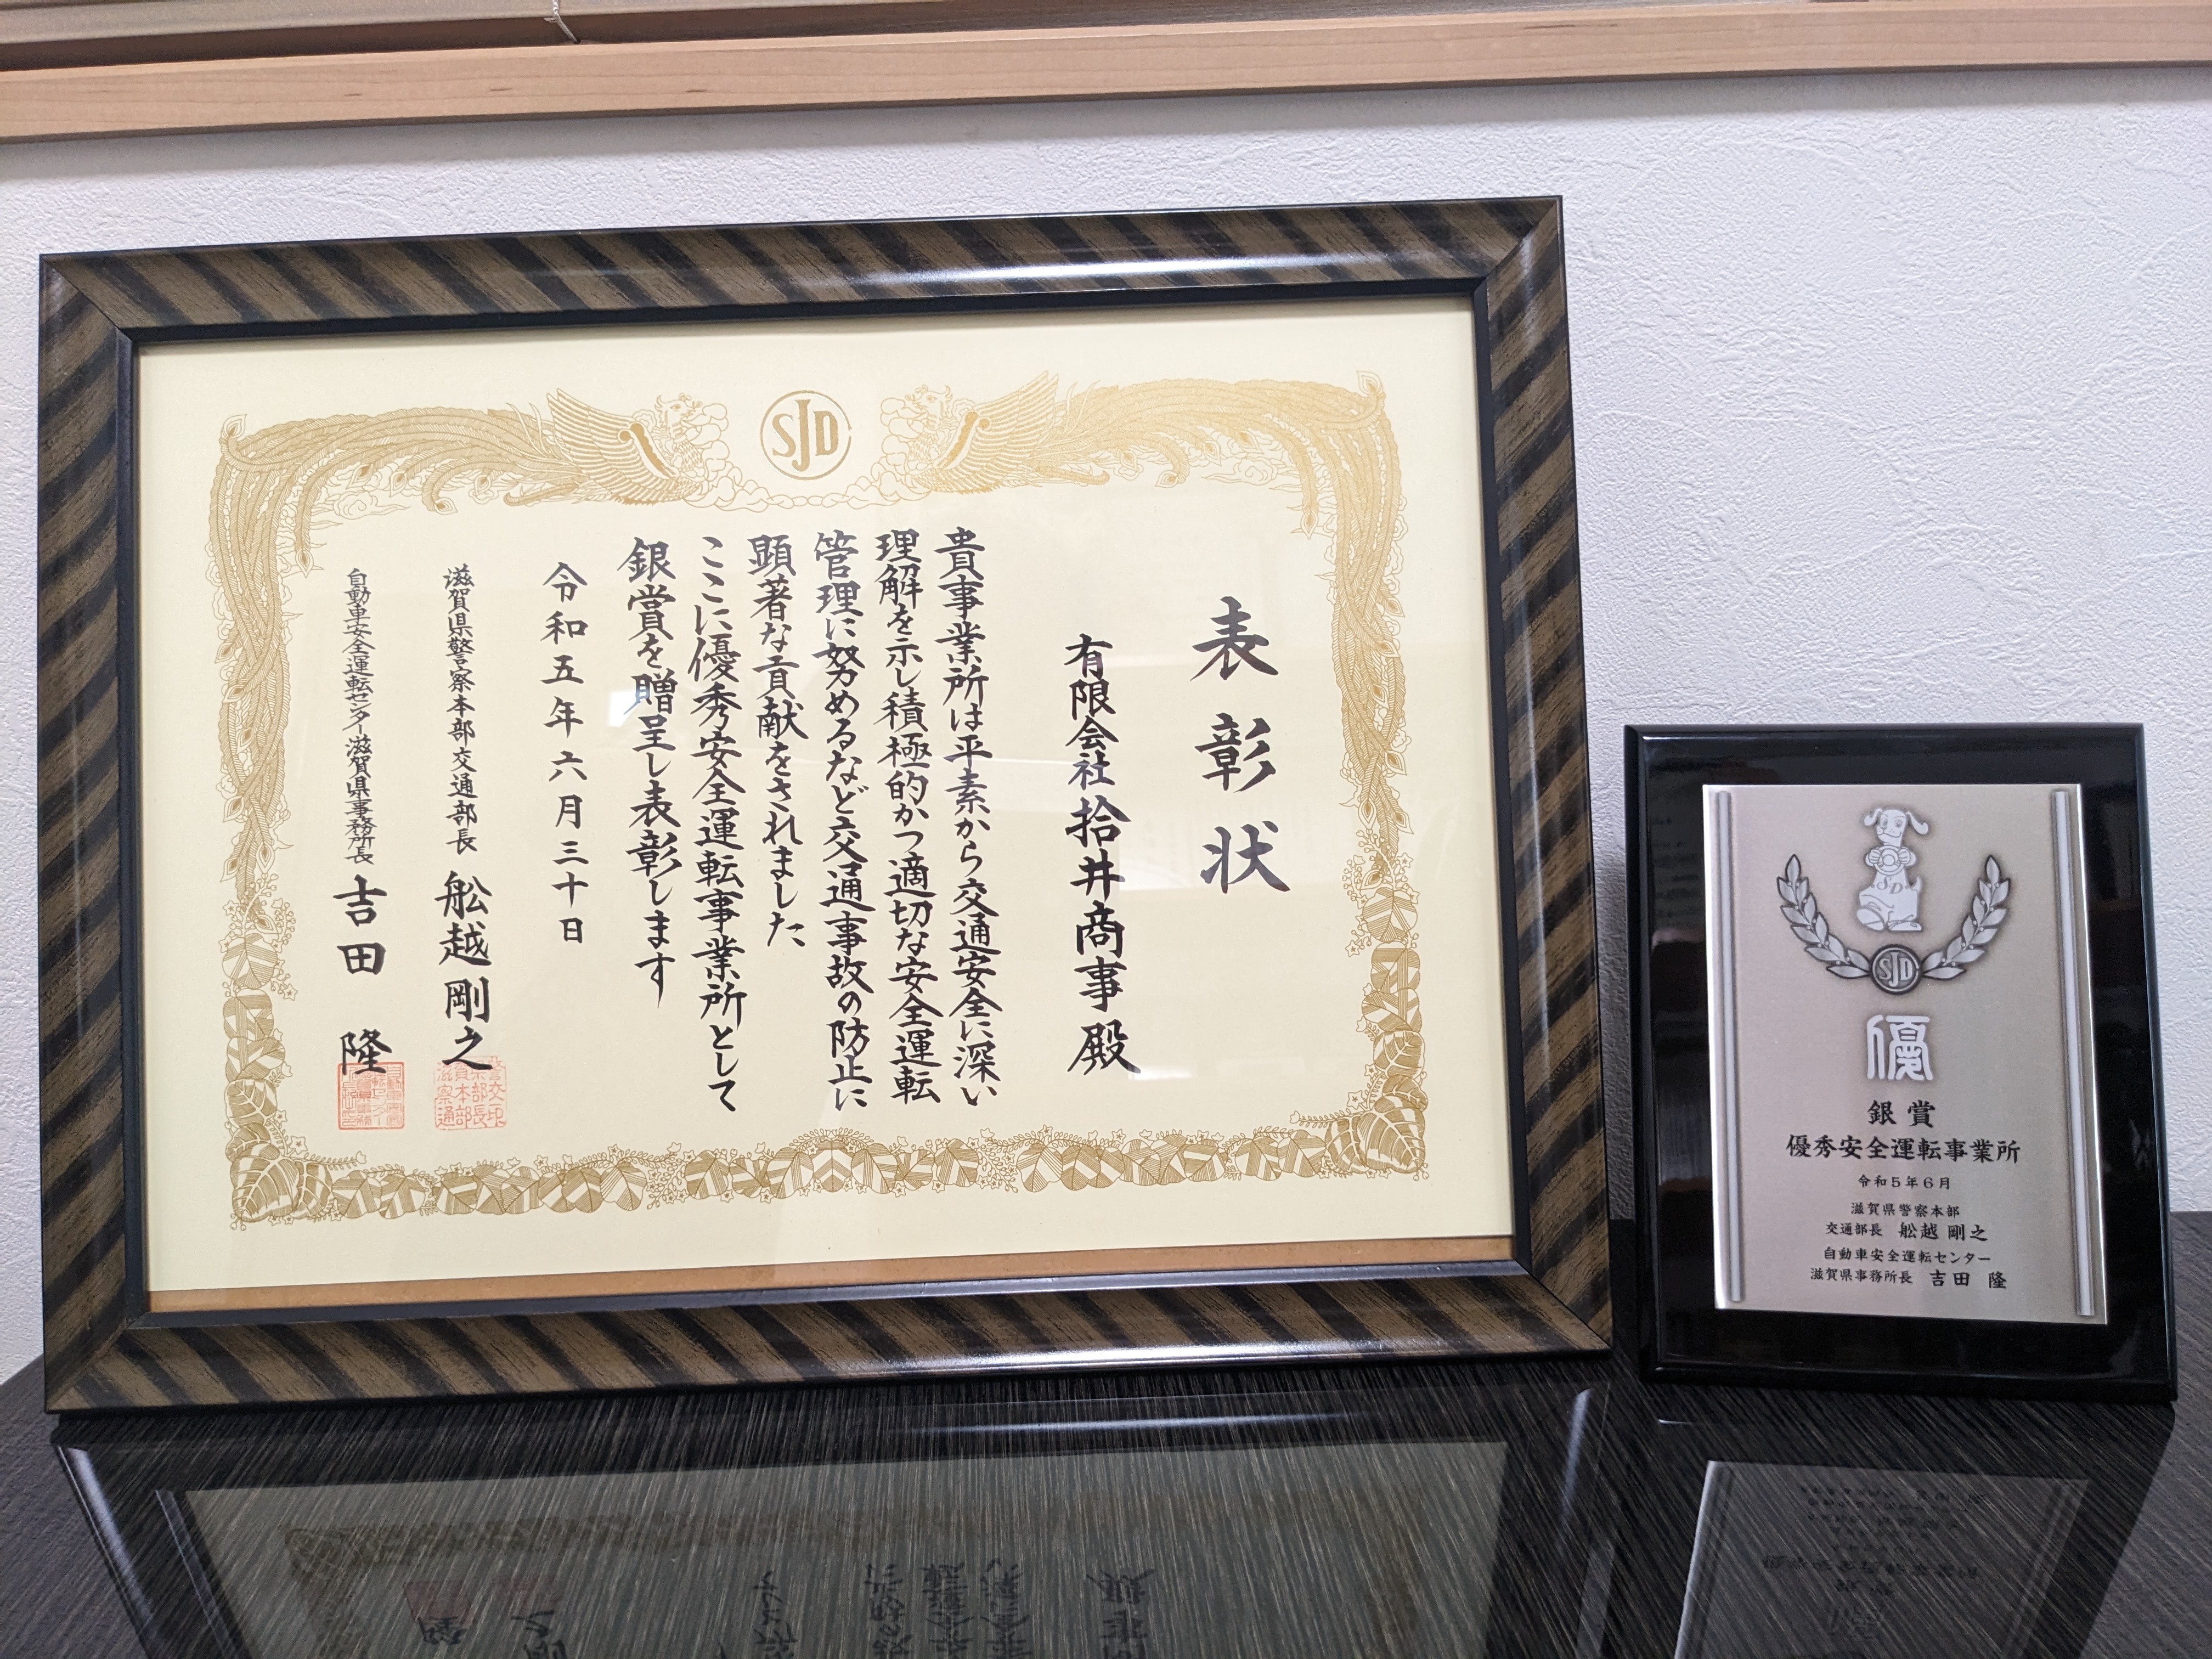 SJD
表彰状
有限会社 拾井商事 殿
貴事業所は平素から交通安全に深い
理解を示し積極的かつ適切な安全運転
管理に努めるなど交通事故の防止に
顕著な貢献をされました
ここに優秀安全運転事業所として
銀賞を贈呈し表彰します
令和五年六月三十日
滋賀県警察本部交通部長 舩越剛之
自動車安全運転センター滋賀県事務所長 吉田 隆
SD
SJD
優
銀賞
優秀安全運転事業所
令和5年6月
滋賀県警察本部
交通部長 舩越 剛之
自動車安全運転センター
滋賀県事務所長 吉田 隆